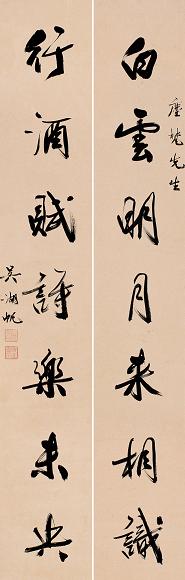 先生
白雲明月来相識
行酒賦詩樂未央
吳湖帆